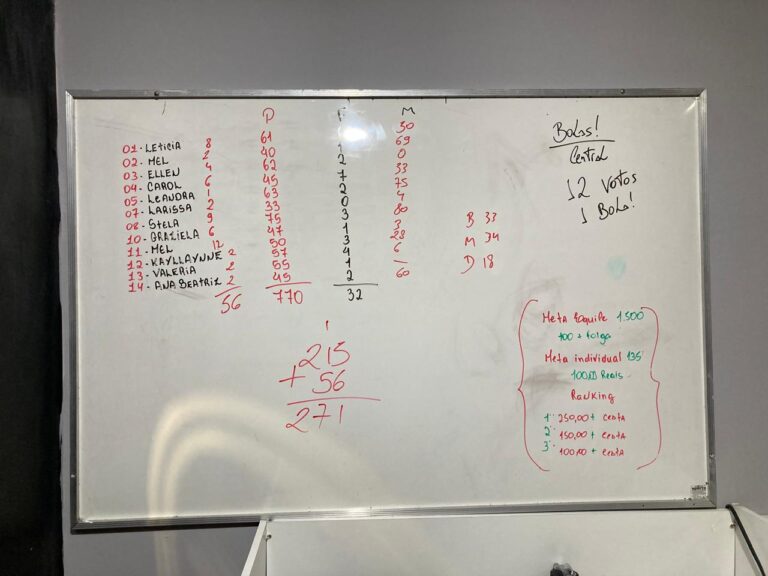 P M
01- LETICIA 8 61 50
02- MEL 2 40 69
03- ELLEN 4 62 2 0
04- CAROL 6 45 7 33
05- LEANDRA 1 63 2 75
07- LARISSA 2 33 0 4
08- STELA 9 75 3 80
10- GRAZIELA 6 47 1 3
11- MEL 12 50 3 28
12- KAYLLAYNNE 2 57 4 6
13- VALERIA 2 55 1 -
14- ANA BEATRIZ 2 45 2 60
56 770 32
B 33
M 34
D 18
1
215
+ 56
271
Bolos!
Central
12 Votos
1 Bolo!
Meta Equipe 1.500
100 + folga
Meta individual 135
100,00 Reais
RanKing
1º 250,00 + cesta
2º 150,00 + cesta
3º 100,00 + cesta